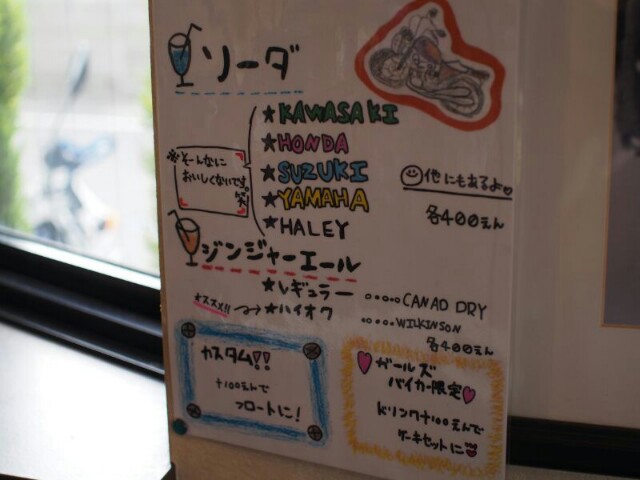 ソーダ
★KAWASAKI
★HONDA
★SUZUKI
★YAMAHA
★HALEY
※そーんなに
おいしくないです。
☺他にもあるよ♡
各400えん
ジンジャーエール
★レギュラー ○○○○○CANAD DRY
オススメ!! → ★ハイオク ○○○○○WILKINSON
各400えん
カスタム!!
+100えんで
フロートに!
ガールズ
バイカー限定
ドリンク+100えんで
ケーキセットに